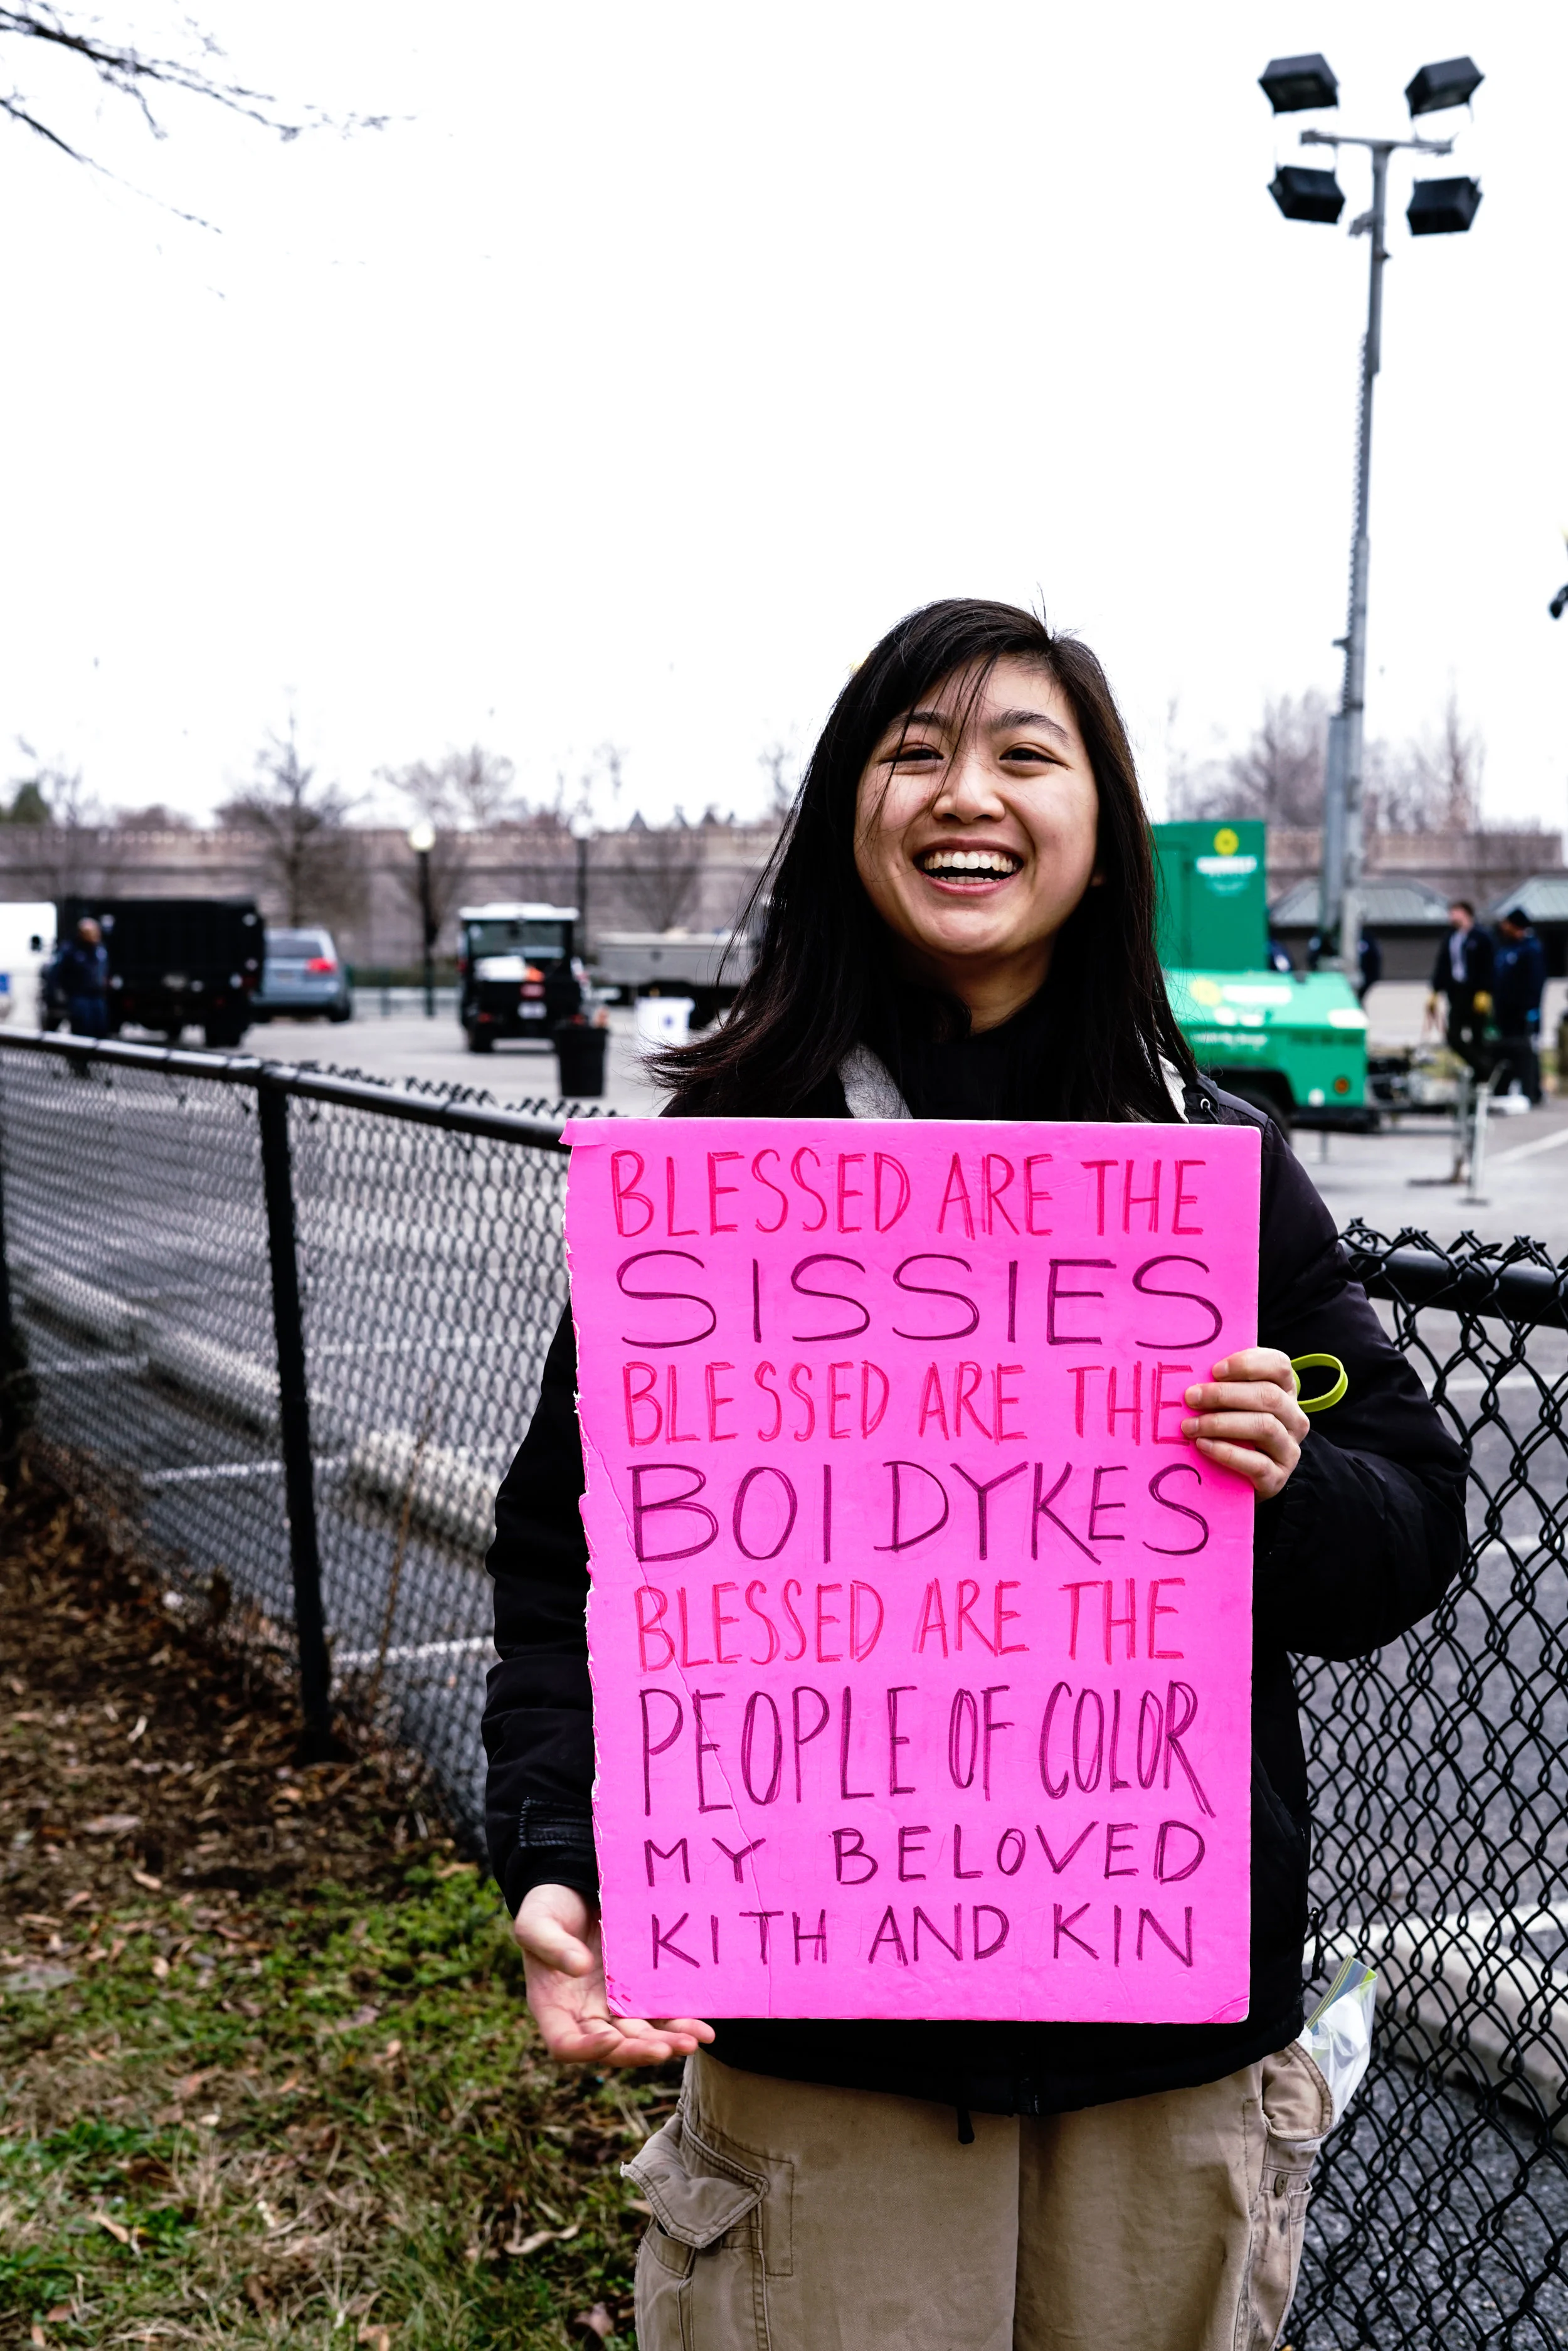 BLESSED ARE THE
SISSIES
BLESSED ARE THE
BOI DYKES
BLESSED ARE THE
PEOPLE OF COLOR
MY BELOVED
KITH AND KIN